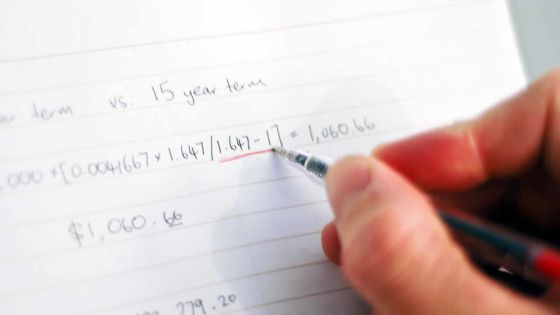 term vs. 15 year term
,000 × [0.0041667 × 1.647/1.647-1] = 1,060.66
$1,060.66
279.20